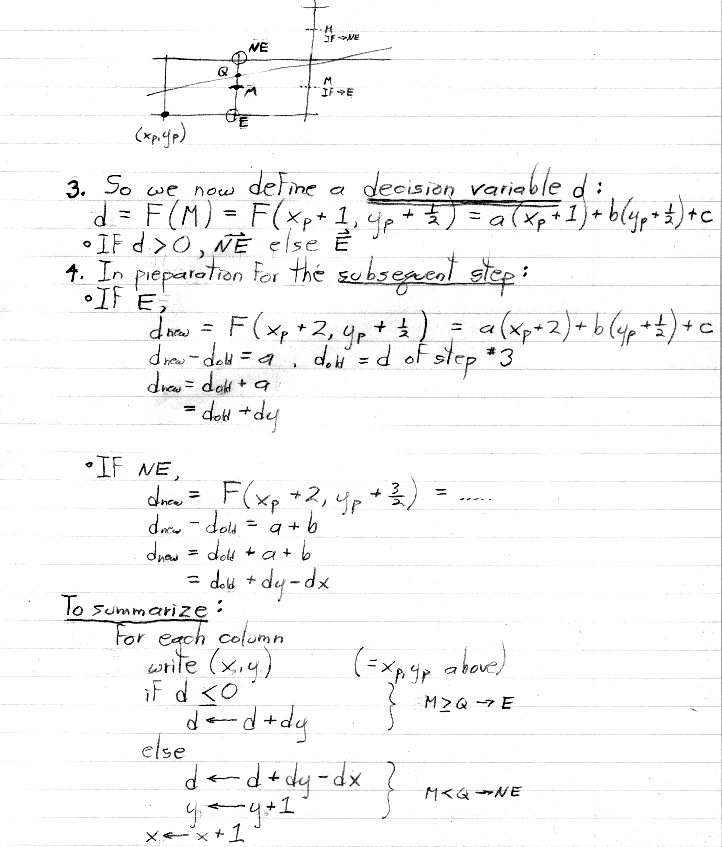 M
IF→NE
NE
Q
M
M
IF→E
E
(xp,yp)
3. So we now define a decision variable d:
d = F(M) = F(xp + 1, yp + 1/2) = a(xp+1)+b(yp+1/2)+c
• IF d > 0, NE else E
4. In preparation for the subsequent step:
• IF E,
dnew = F(xp+2, yp + 1/2) = a(xp+2)+b(yp+1/2)+c
dnew - dold = a, dold = d of step #3
dnew = dold + a
= dold + dy
• IF NE,
dnew = F(xp+2, yp + 3/2) = .....
dnew - dold = a + b
dnew = dold + a + b
= dold + dy - dx
To summarize:
For each column
write (x,y) (=xp,yp above)
if d ≤ 0
d ← d + dy } M ≥ Q → E
else
d ← d + dy - dx
y ← y + 1 } M < Q → NE
x ← x + 1